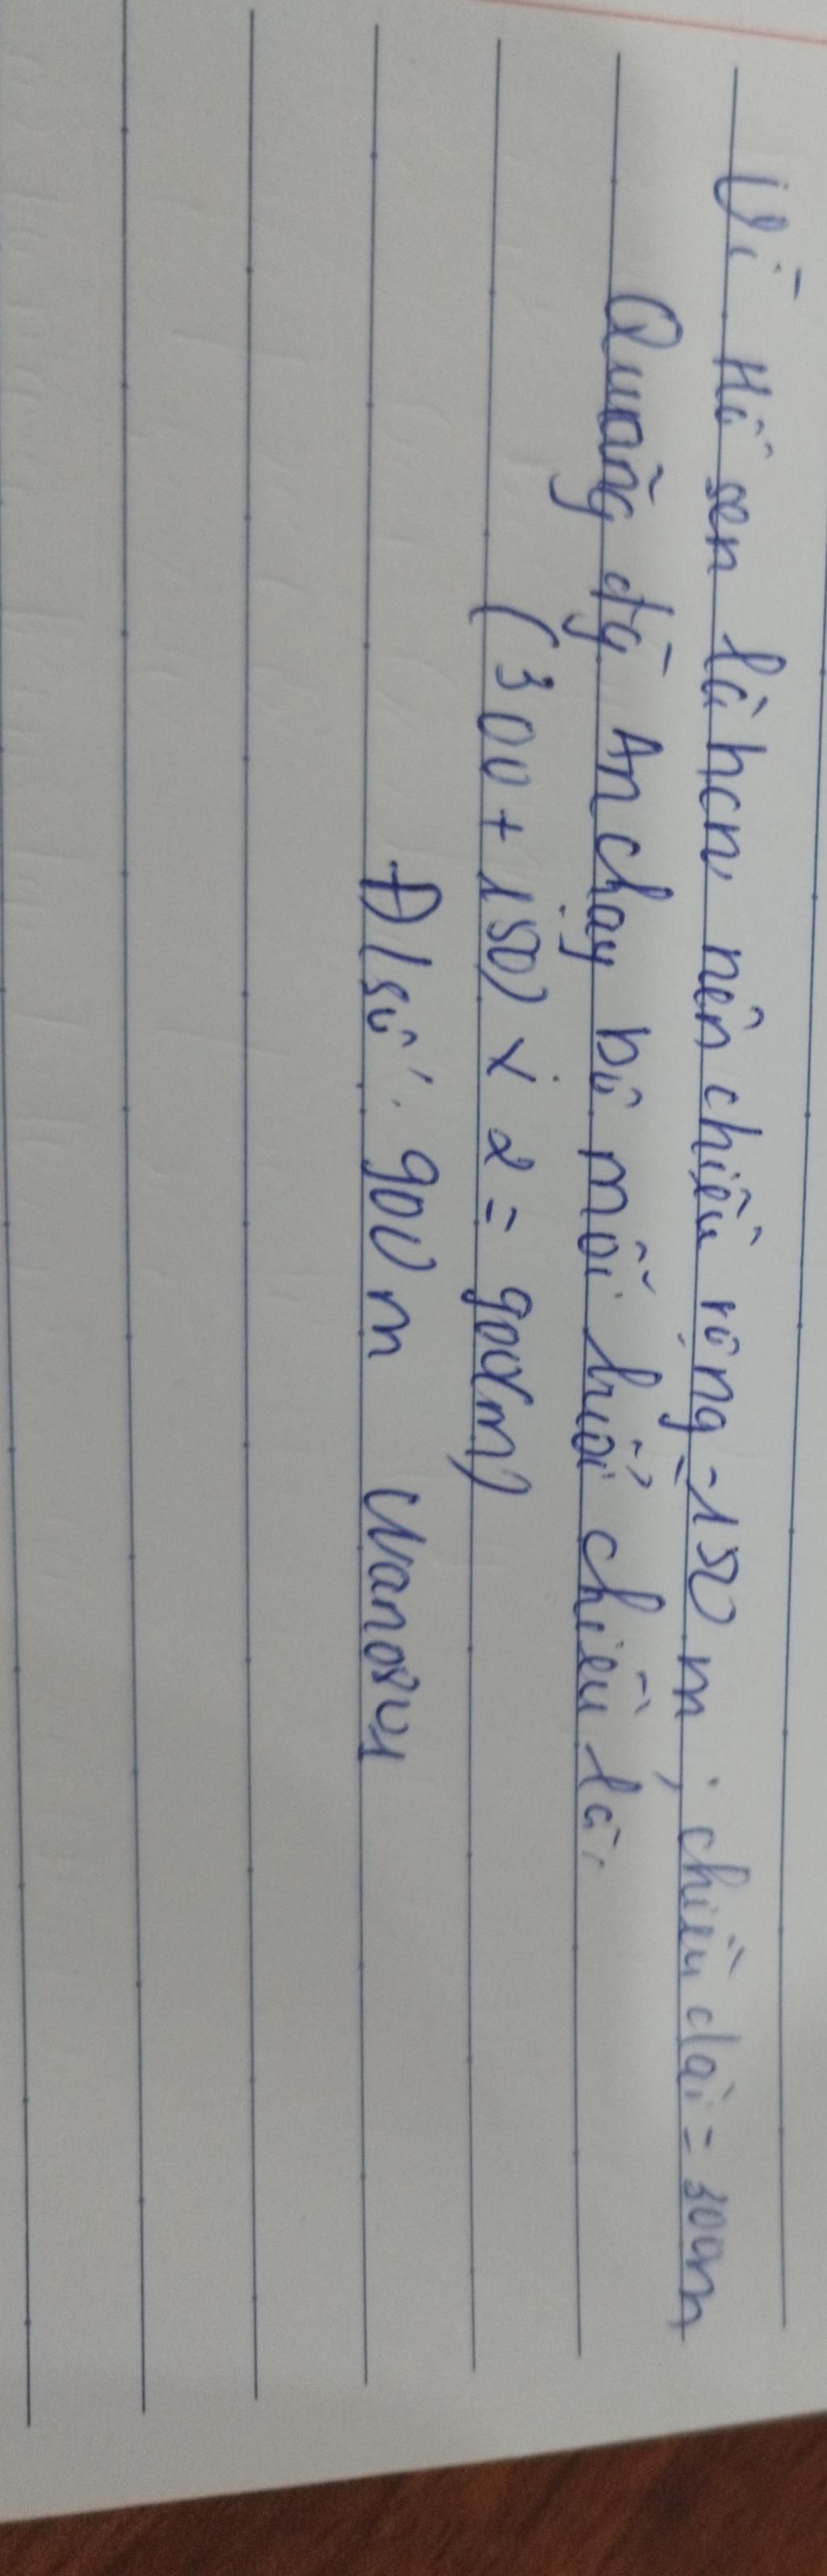 Vì Hồ sen là hcn nên chiều rộng = 150 m; chiều dài = 300m
Quãng đg An chạy bộ mỗi buổi chiều là:
(300 + 150) x 2 = 900(m)
Đ/số: 900 m